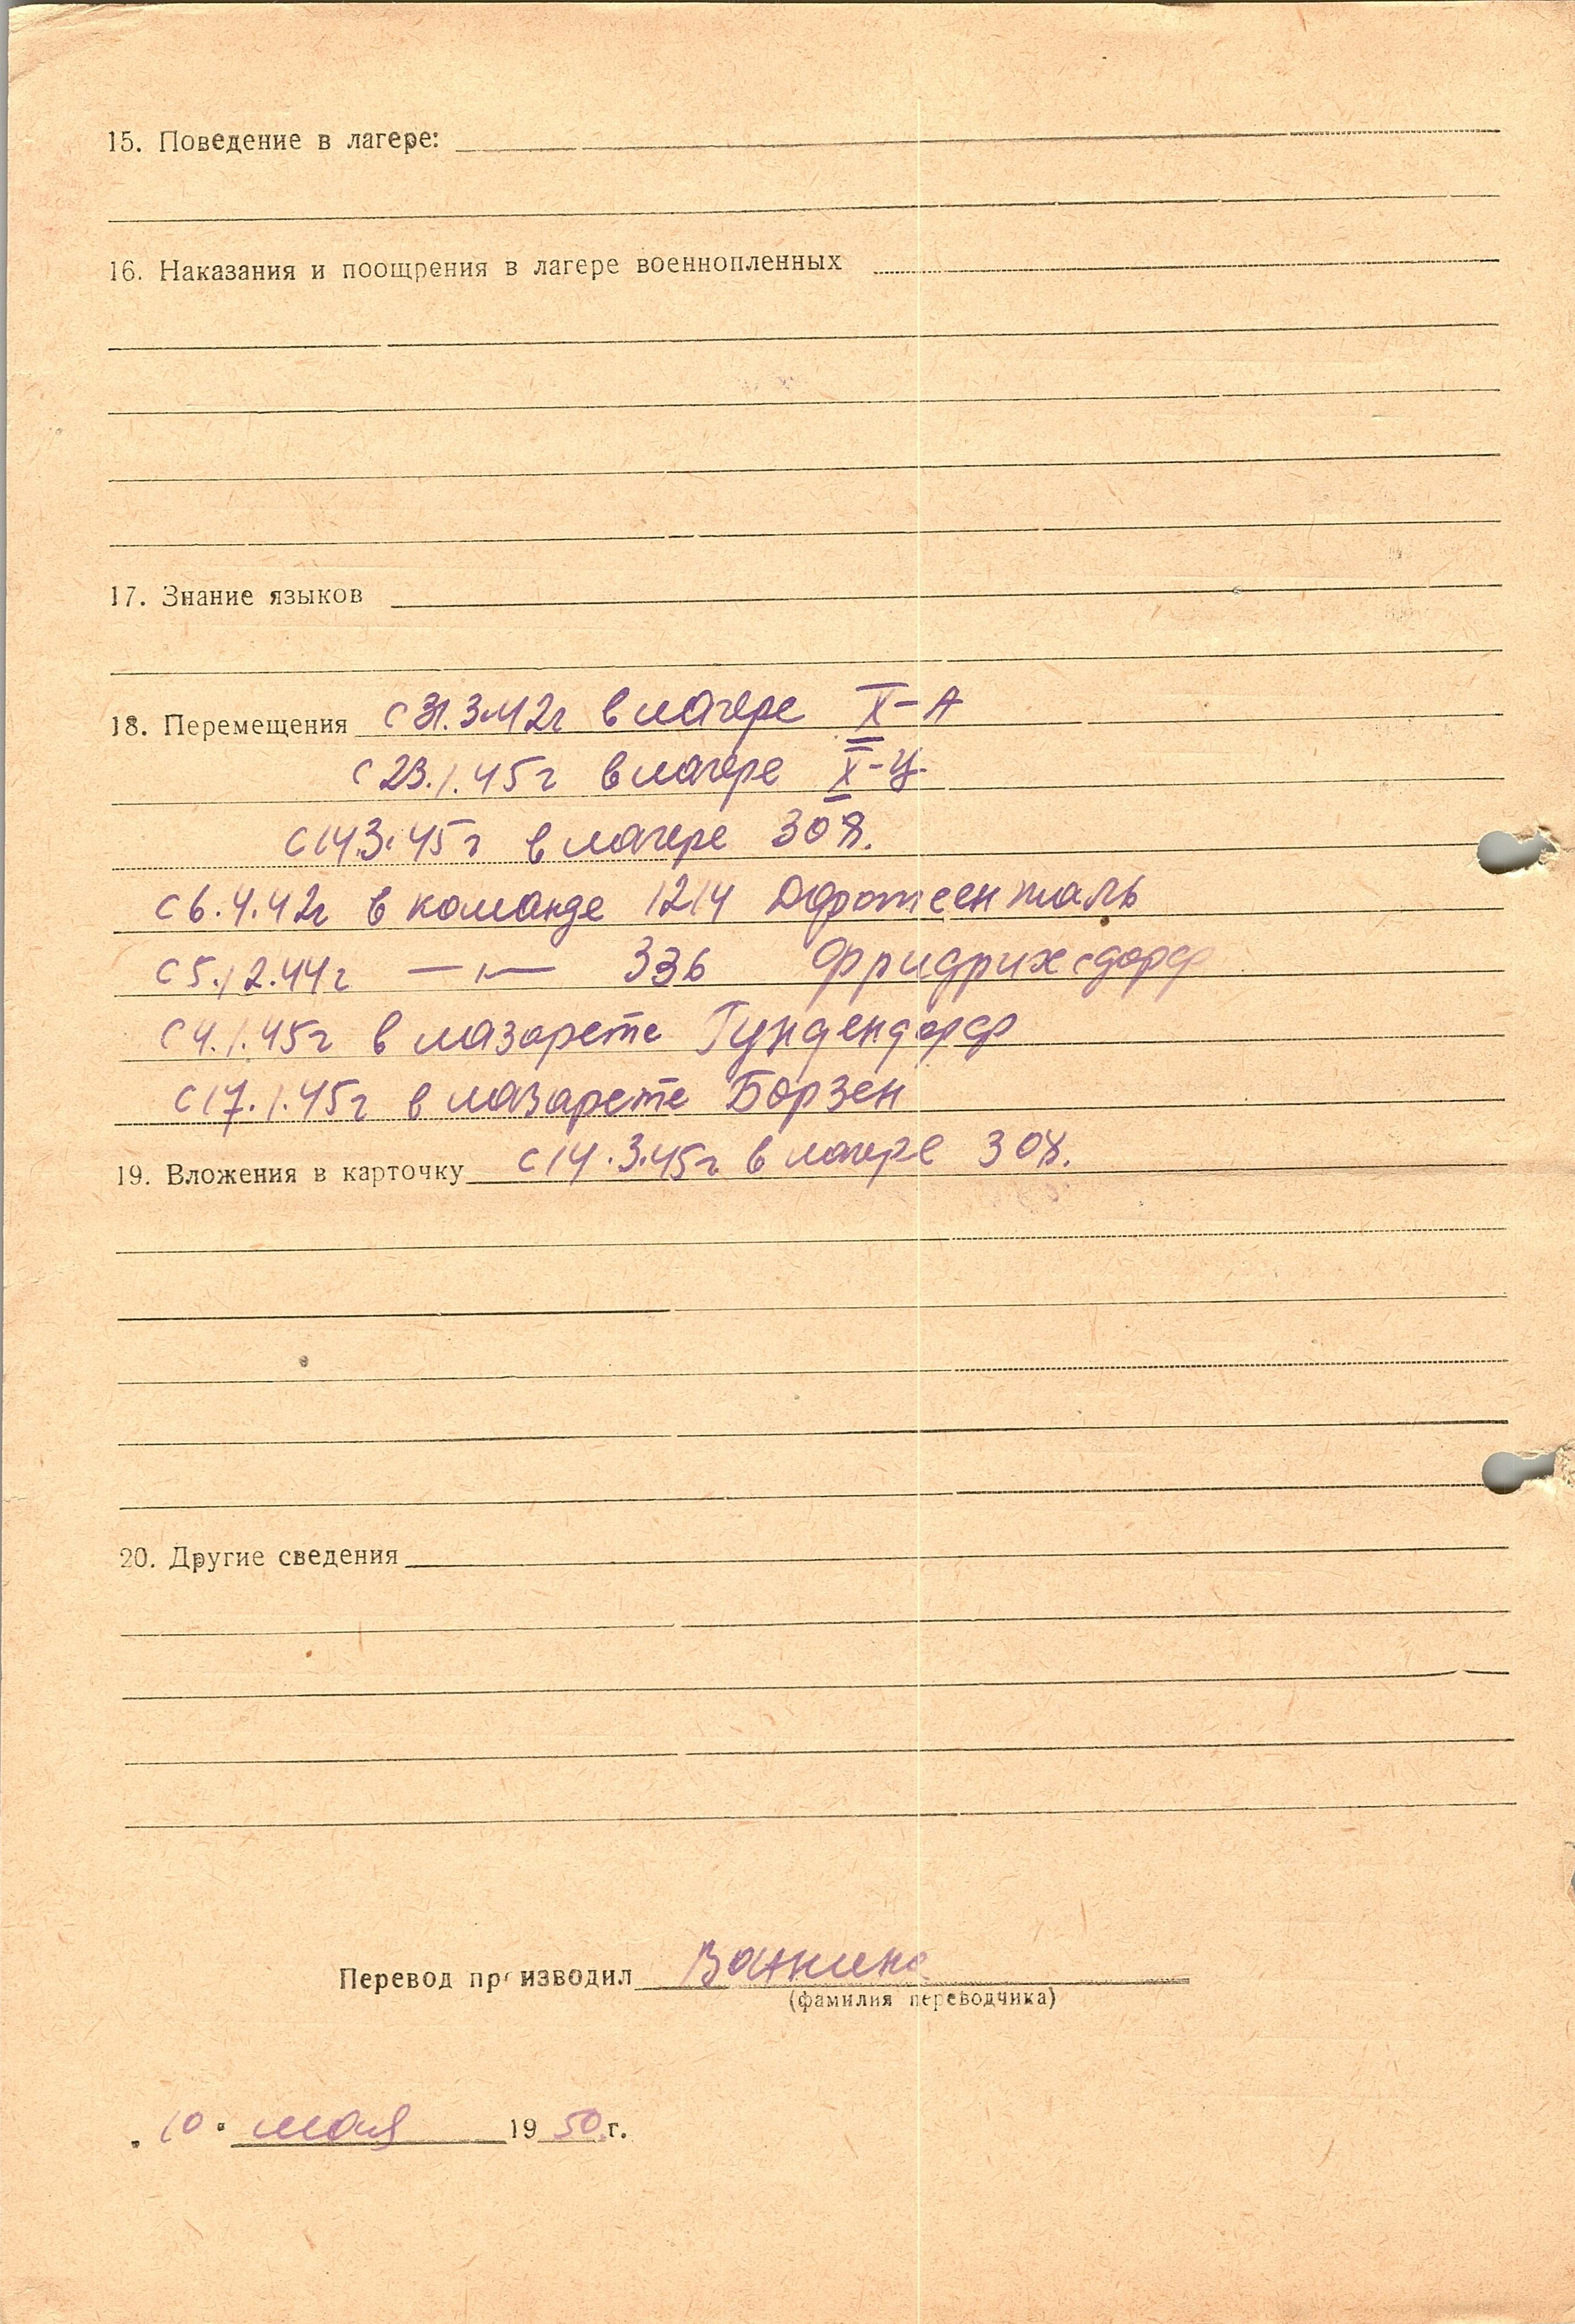 15. Поведение в лагере:
16. Наказания и поощрения в лагере военнопленных
17. Знание языков
18. Перемещения с 31.3.42г в лагере X-А
с 23.1.45г в лагере X-Ц
с 14.3.45г в лагере 308.
с 6.4.42г в команде 1214 Доротеенталь
с 5.12.44г —"— 336 Фридрихсдорф
с 4.1.45г в лазарете Гундендорф
с 17.1.45г в лазарете Борзен
19. Вложения в карточку с 14.3.45г в лагере 308.
20. Другие сведения
Перевод производил Ванина
(фамилия переводчика)
„10" мая 1950г.